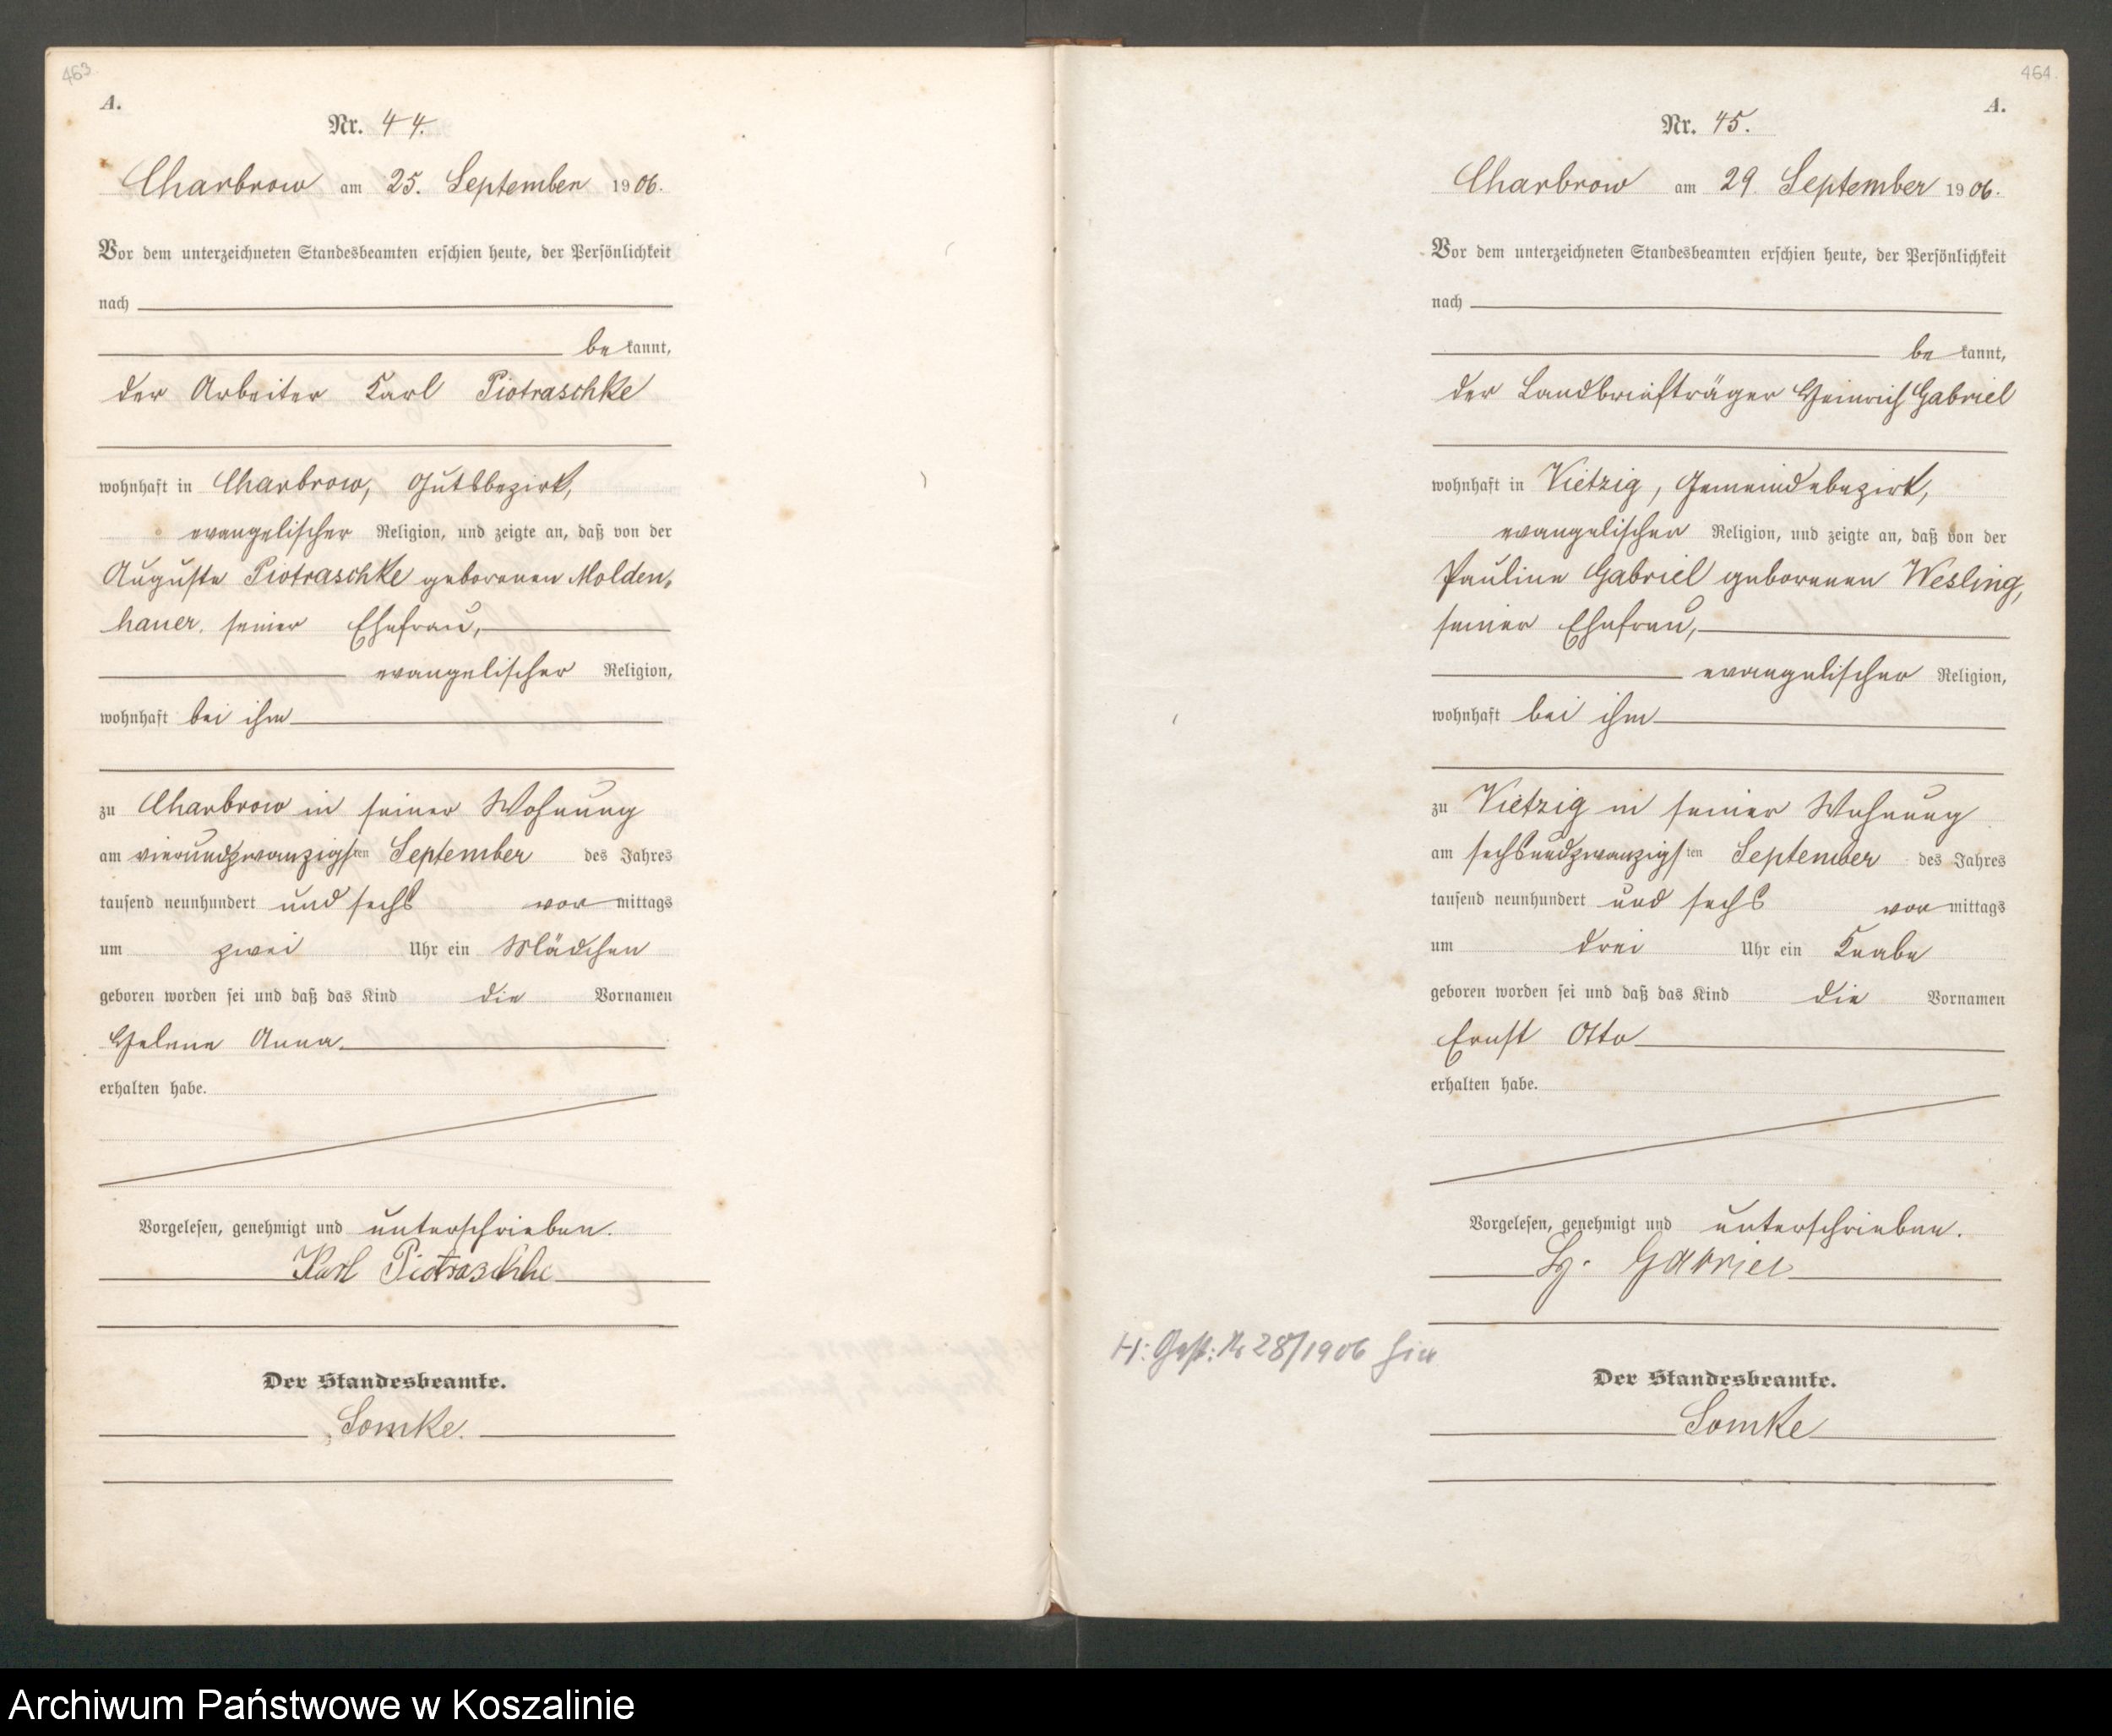 463.
A.
Nr. 44.
Charbrow am 25. September 1906.
Vor dem unterzeichneten Standesbeamten erschien heute, der Persönlichkeit
nach
be kannt,
der Arbeiter Karl Piotraschke
wohnhaft in Charbrow, Gutsbezirk,
evangelischer Religion, und zeigte an, daß von der
Auguste Piotraschke geborenen Molden„
hauer, seiner Ehefrau,
evangelischer Religion,
wohnhaft bei ihm
zu Charbrow in seiner Wohnung
am vierundzwanzigsten September des Jahres
tausend neunhundert und sechs vor mittags
um zwei Uhr ein Mädchen
geboren worden sei und daß das Kind die Vornamen
Helene Anna
erhalten habe.
Vorgelesen, genehmigt und unterschrieben.
Karl Piotraschke
Der Standesbeamte.
Somke.
464.
A.
Nr. 45.
Charbrow am 29 September 1906.
Vor dem unterzeichneten Standesbeamten erschien heute, der Persönlichkeit
nach
be kannt,
der Landbriefträger Heinrich Gabriel
wohnhaft in Vietzig, Gemeindebezirk,
evangelischer Religion, und zeigte an, daß von der
Pauline Gabriel geborenen Wesling,
seiner Ehefrau,
evangelischer Religion,
wohnhaft bei ihm
zu Vietzig in seiner Wohnung
am sechsundzwanzigsten September des Jahres
tausend neunhundert und sechs vor mittags
um drei Uhr ein Knabe
geboren worden sei und daß das Kind die Vornamen
Ernst Otto
erhalten habe.
Vorgelesen, genehmigt und unterschrieben.
Gabriel
H: Gest: N 28/1906 hier
Der Standesbeamte.
Somke
Archiwum Państwowe w Koszalinie